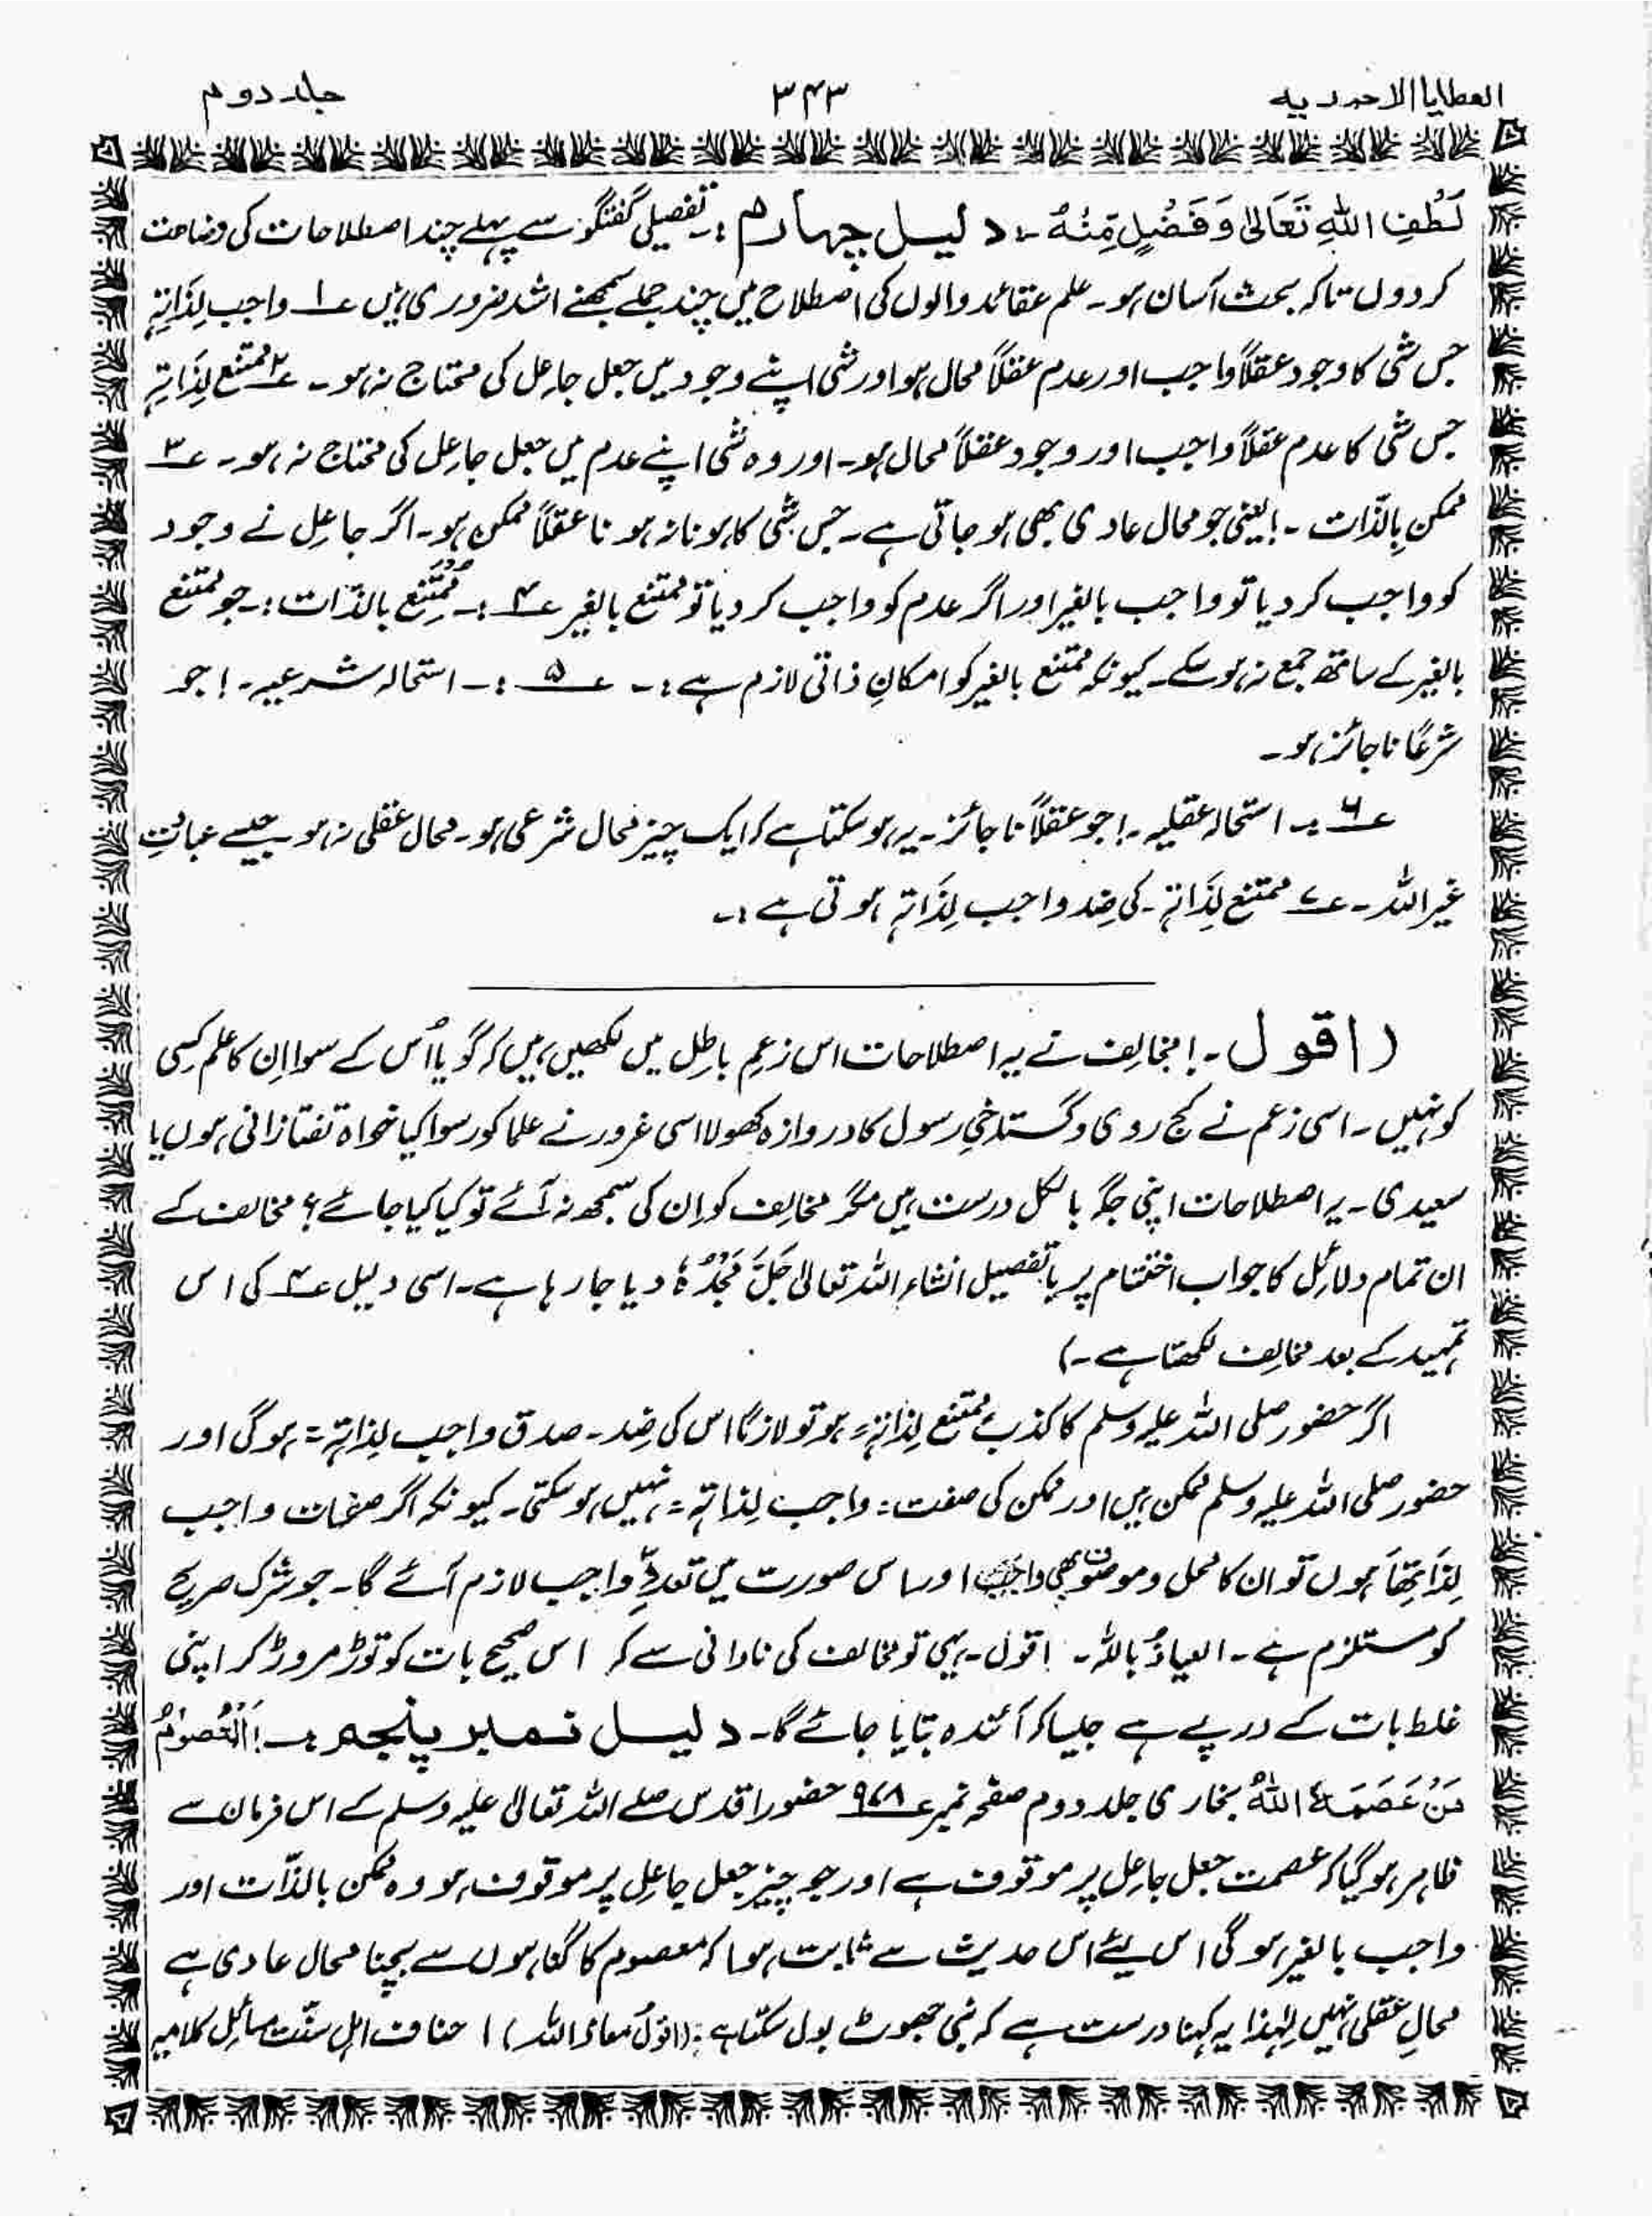 العطایا الاحمدیہ ۳۴۳ جلد دوم
لُطْفِ اللّٰہِ تَعَالٰی وَفَضْلٍ مِّنْہُ :۔ دلیل چہارم :۔ تفصیلی گفتگو سے پہلے چند اصطلاحات کی وضاحت
کر دوں تاکہ بحث آسان ہو۔ علم عقائد والوں کی اصطلاح میں چند جملے سمجھنے اشد ضروری ہیں ۱؎ واجب لِذَاتِہٖ
جس شی کا وجود عقلاً واجب اور عدم عقلاً محال ہو اور شی اپنے وجود میں جعل جاعل کی محتاج نہ ہو۔ ۲؎ ممتنع لِذَاتِہٖ
جس شی کا عدم عقلاً واجب اور وجود عقلاً محال ہو۔ اور وہ شی اپنے عدم میں جعل جاعل کی محتاج نہ ہو۔ ۳؎
ممکن بِالذّات ۔! یعنی جو محال عادی بھی ہو جاتی ہے۔ جس شی کا ہونا نہ ہونا عقلاً ممکن ہو۔ اگر جاعِل نے وجود
کو واجب کر دیا تو واجب بالغیر اور اگر عدم کو واجب کر دیا تو ممتنع بالغیر ۴؎ :۔ مُمْتَنِع بالذّات :۔ جو ممتنع
بالغیر کے ساتھ جمع نہ ہو سکے۔ کیونکہ ممتنع بالغیر کو امکانِ ذاتی لازم ہے :۔ ۵؎ :۔ استحالہ شرعیہ ۔! جو
شرعًا ناجائز ہو۔
۶؎ :۔ استحالہ عقلیہ ۔! جو عقلاً ناجائز۔ یہ ہو سکتا ہے کہ ایک چیز محال شرعی ہو۔ محال عقلی نہ ہو۔ جیسے عبادتِ
غیر اللّٰہ۔ ۷؎ ممتنع لِذَاتِہٖ۔ کی ضِد واجب لِذَاتِہٖ ہوتی ہے :۔
(اقول ۔! مخالِف نے یہ اصطلاحات اس زعمِ باطِل میں لکھیں ہیں کہ گویا اُس کے سوا اِن کا علم کِسی
کو نہیں۔ اسی زعم نے کج روی و گستاخیِ رسول کا دروازہ کھولا اسی غرور نے علما کو رسوا کیا خواہ تفتازانی ہوں یا
سعیدی۔ یہ اصطلاحات اپنی جگہ بالکل درست ہیں مگر مخالِف کو اِن کی سمجھ نہ آئے تو کیا کیا جائے؟ مخالف کے
ان تمام دلائل کا جواب اختتام پر باتفصیل انشاء اللّٰہ تعالیٰ جَلَّ مَجْدُہٗ دیا جا رہا ہے۔ اسی دلیل ۴؎ کی اس
تمہید کے بعد مخالِف لکھتا ہے۔)
اگر حضور صلی اللّٰہ علیہ وسلم کا کذب ممتنع لِذاتِہٖ ہو تو لازمًا اس کی ضِد۔ صدق واجب لِذاتِہٖ = ہوگی اور
حضور صلی اللّٰہ علیہ وسلم ممکن ہیں اور ممکن کی صفت = واجب لِذاتِہٖ = نہیں ہو سکتی۔ کیونکہ اگر صفات واجب
لِذَاتِھَا ہوں تو ان کا محل و موصوف بھی واجب اور اس صورت میں تعددِ واجب لازم آئے گا۔ جو شرک صریح
کو مستلزم ہے۔ العیاذُ باللّٰہ ۔ اقول۔ یہی تو مخالف کی نادانی سے کہ اس صحیح بات کو توڑ مروڑ کر اپنی
غلط بات کے درپے ہے جیسا کہ آئندہ بتایا جائے گا۔ دلیل نمبر پنجم :۔! اَلْعُصْوْمُ
مَنْ عَصَمَہُ اللّٰہُ بخاری جلد دوم صفحہ نمبر ۹۷۸ حضور اقدس صلے اللّٰہ تعالیٰ علیہ وسلم کے اس فرمان سے
ظاہر ہو گیا کہ عصمت جعل جاعل پر موقوف ہے اور جو چیز جعل جاعِل پر موقوف ہو وہ ممکن بالذّات اور
واجب بالغیر ہوگی اس لیئے اس حدیث سے ثابت ہوا کہ معصوم کا گناہوں سے بچنا محال عادی ہے
محالِ عقلی نہیں لہٰذا یہ کہنا درست ہے کہ نبی جھوٹ بول سکتا ہے :(اقولُ معاذ اللّٰہ) احناف اہلِ سنّت مسائلِ کلامیہ